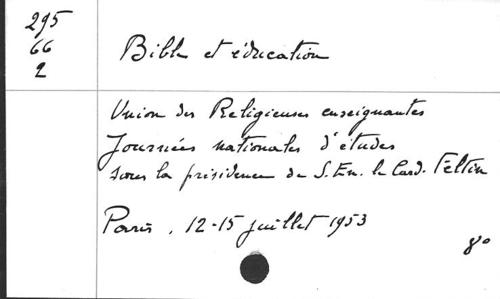 295
66
2
Bible et éducation
Union des Religieuses enseignantes
Journées nationales d'études
sous la présidence de S. Em. le Card. Feltin
Paris, 12-15 juillet 1953
8°